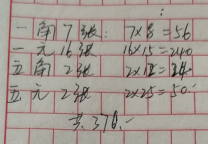 一角7张: 7×8=56
一元16张 16×15=240
五角2张 2×12=24
五元2张 2×25=50.-
共.376.-